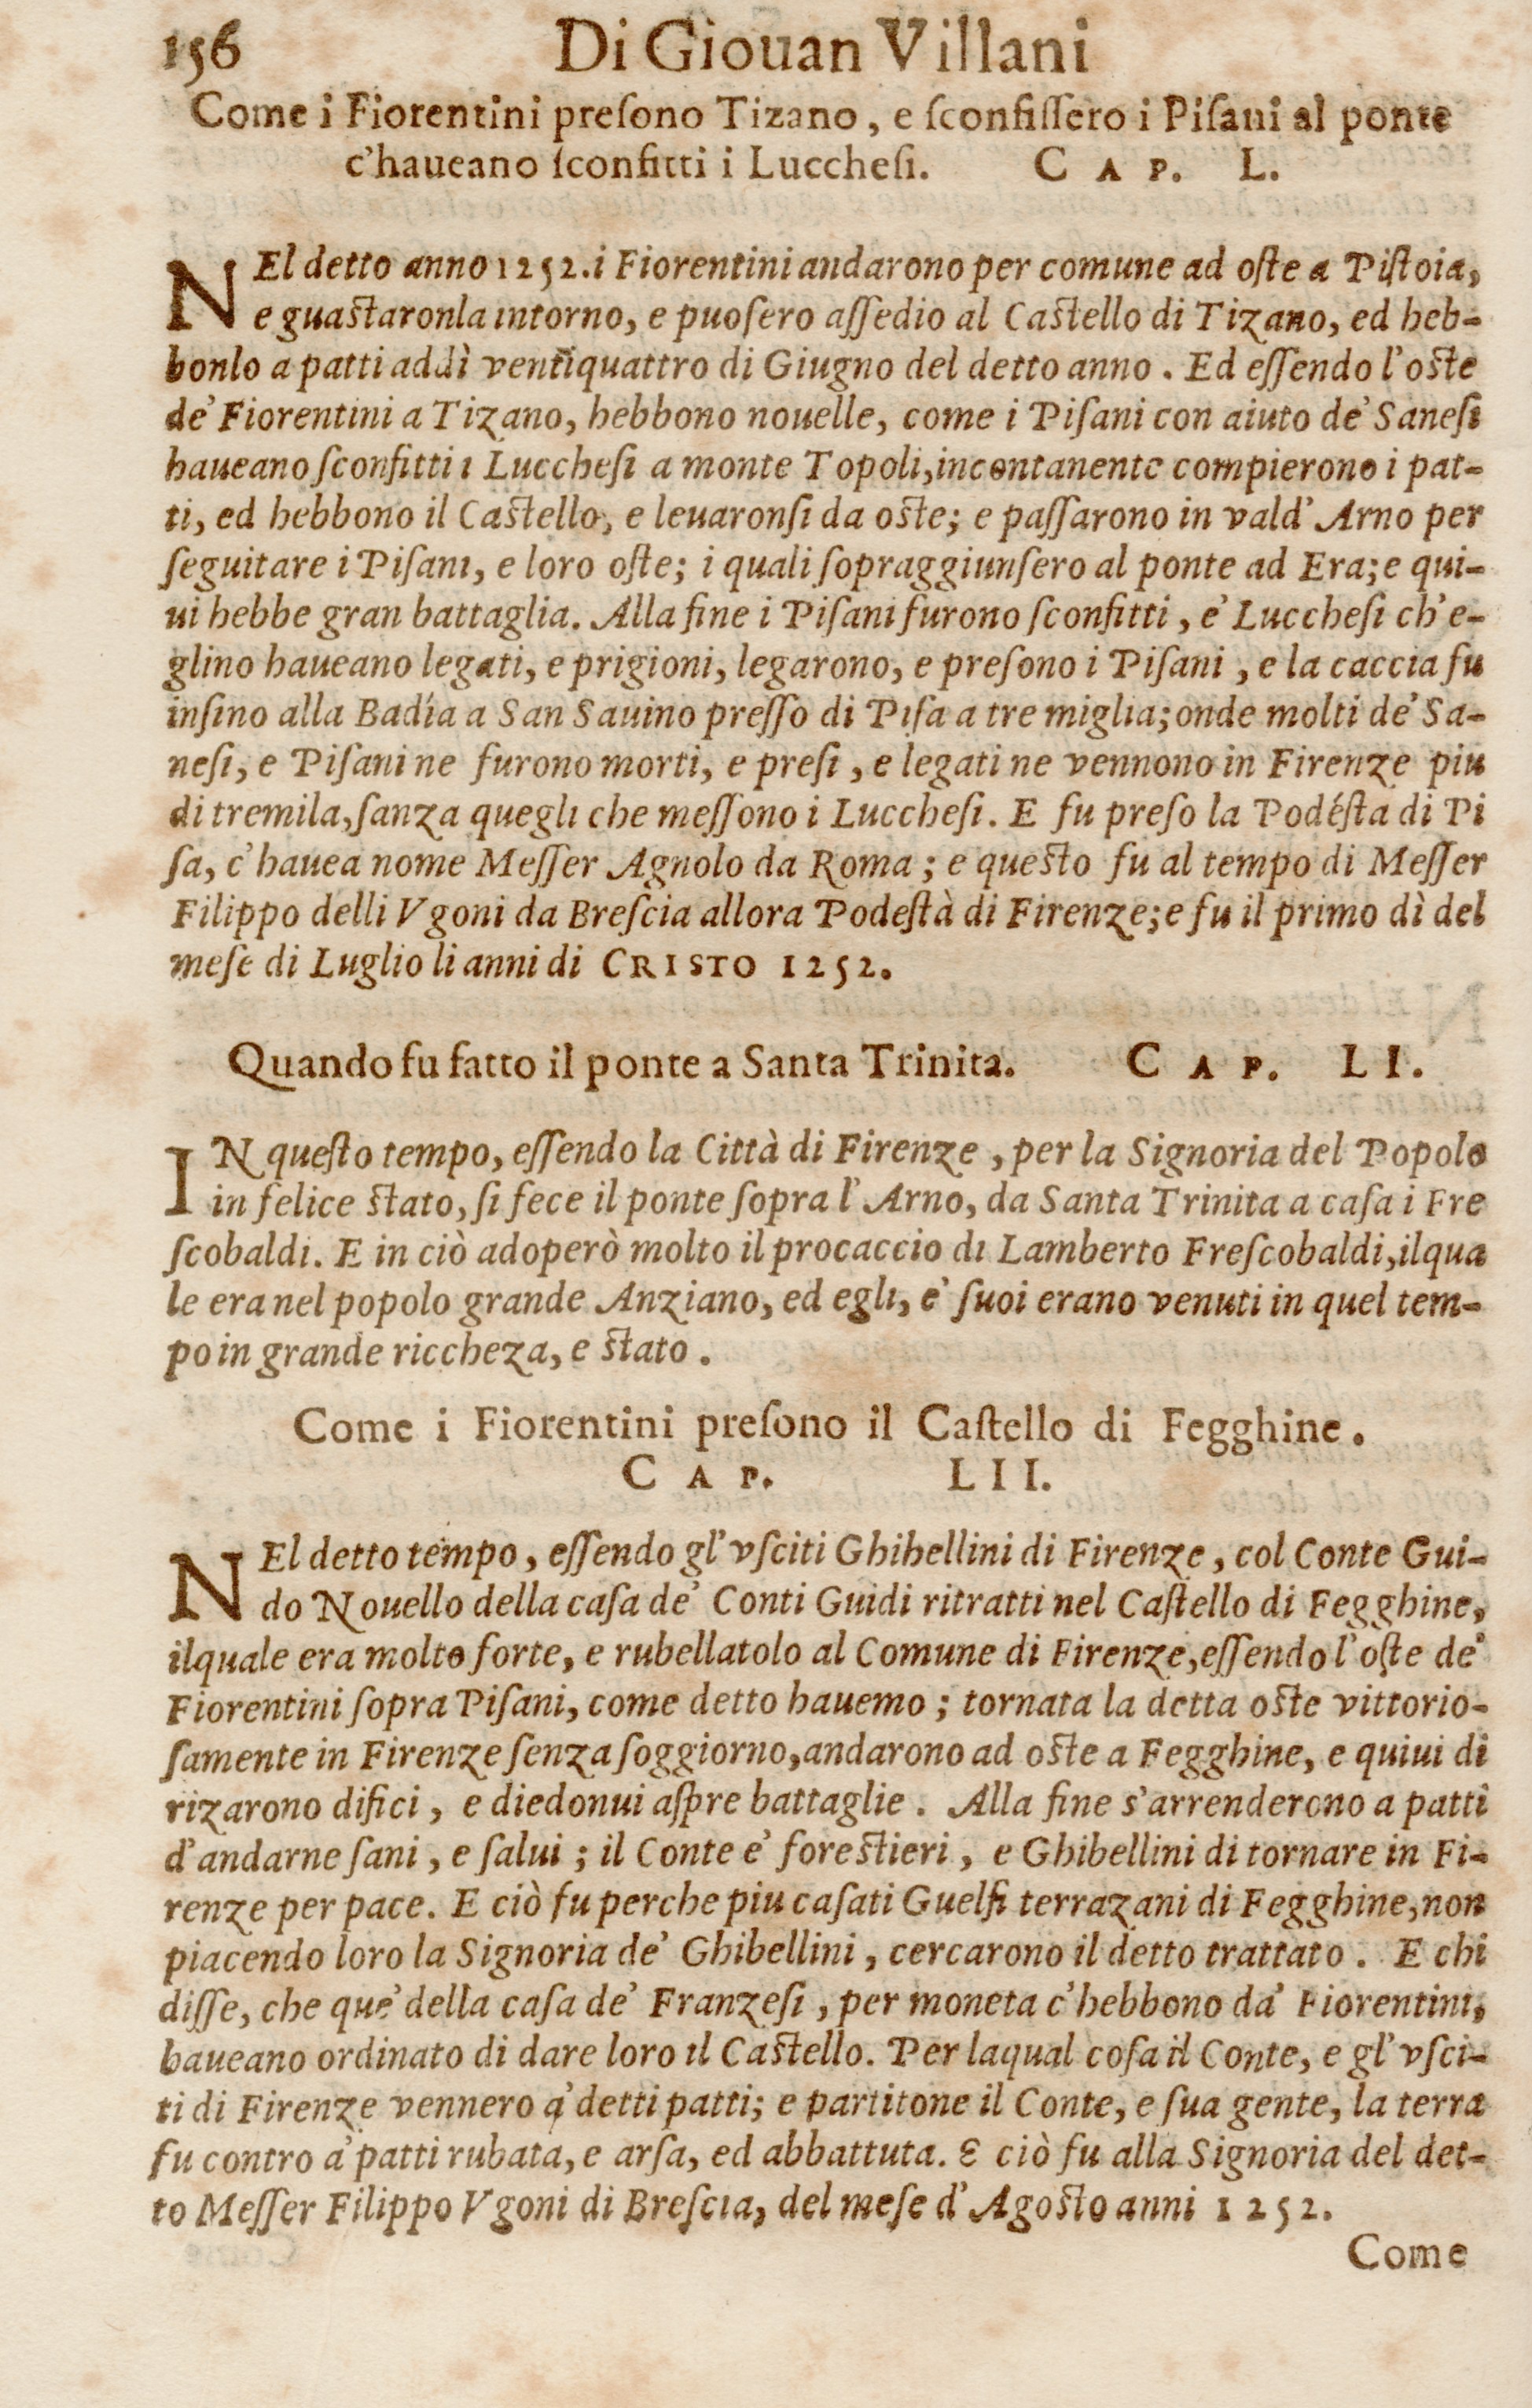 156 Di Giouan Villani
Come i Fiorentini preſono Tizano, e ſconfiſſero i Piſani al ponte
c'haueano ſconfitti i Luccheſi. CAP. L.
NEl detto anno 1252. i Fiorentini andarono per comune ad oſte a Piſtoia,
e guaſtaronla intorno, e puoſero aſſedio al Caſtello di Tizano, ed heb-
bonlo a patti addì ventiquattro di Giugno del detto anno. Ed eſſendo l'oſte
de' Fiorentini a Tizano, hebbono nouelle, come i Piſani con aiuto de' Saneſi
haueano ſconfitti i Luccheſi a monte Topoli, incontanente compierono i pat-
ti, ed hebbono il Caſtello, e leuaronſi da oſte; e paſſarono in vald'Arno per
ſeguitare i Piſani, e loro oſte; i quali ſopraggiunſero al ponte ad Era; e qui-
ui hebbe gran battaglia. Alla fine i Piſani furono ſconfitti, e' Luccheſi ch'e-
glino haueano legati, e prigioni, legarono, e preſono i Piſani, e la caccia fu
inſino alla Badía a San Sauino preſſo di Piſa a tre miglia; onde molti de' Sa-
neſi, e Piſani ne furono morti, e preſi, e legati ne vennono in Firenze piu
di tremila, ſanza quegli che meſſono i Luccheſi. E fu preſo la Podéſta di Pi
ſa, c'hauea nome Meſſer Agnolo da Roma; e queſto fu al tempo di Meſſer
Filippo delli Vgoni da Breſcia allora Podeſtà di Firenze; e fu il primo dì del
meſe di Luglio li anni di CRISTO 1252.
Quando fu fatto il ponte a Santa Trinita. CAP. LI.
IN queſto tempo, eſſendo la Città di Firenze, per la Signoria del Popolo
in felice ſtato, ſi fece il ponte ſopra l'Arno, da Santa Trinita a caſa i Fre
ſcobaldi. E in ciò adoperò molto il procaccio di Lamberto Freſcobaldi, ilqua
le era nel popolo grande Anziano, ed egli, e' ſuoi erano venuti in quel tem-
po in grande riccheza, e ſtato.
Come i Fiorentini preſono il Caſtello di Fegghine.
CAP. LII.
NEl detto tempo, eſſendo gl'vſciti Ghibellini di Firenze, col Conte Gui-
do Nouello della caſa de' Conti Guidi ritratti nel Caſtello di Fegghine,
ilquale era molto forte, e rubellatolo al Comune di Firenze, eſſendo l'oſte de'
Fiorentini ſopra Piſani, come detto hauemo; tornata la detta oſte vittorio-
ſamente in Firenze ſenza ſoggiorno, andarono ad oſte a Fegghine, e quiui di
rizarono difici, e diedonui aſpre battaglie. Alla fine s'arrenderono a patti
d'andarne ſani, e ſalui; il Conte e' foreſtieri, e Ghibellini di tornare in Fi-
renze per pace. E ciò fu perche piu caſati Guelfi terrazani di Fegghine, non
piacendo loro la Signoria de' Ghibellini, cercarono il detto trattato. E chi
diſſe, che que' della caſa de' Franzeſi, per moneta c'hebbono da' Fiorentini,
haueano ordinato di dare loro il Caſtello. Per laqual coſa il Conte, e gl'vſci-
ti di Firenze vennero a' detti patti; e partitone il Conte, e ſua gente, la terra
fu contro a' patti rubata, e arſa, ed abbattuta. E ciò fu alla Signoria del det-
to Meſſer Filippo Vgoni di Breſcia, del meſe d'Agoſto anni 1252.
Come